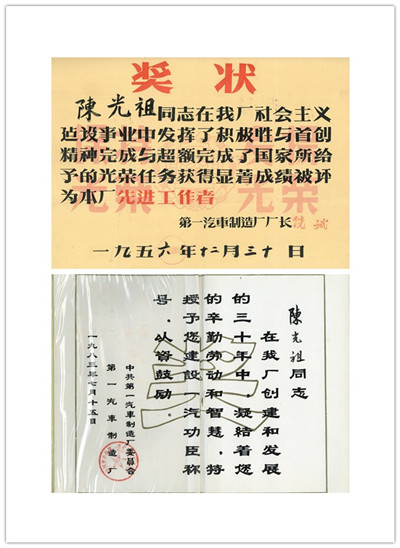 奖状
陳光祖同志在我厂社会主义
建设事业中发挥了积极性与首创
精神完成与超额完成了国家所给
予的光荣任务获得显著成绩被评
为本厂先进工作者
光荣 光荣
第一汽車制造厂厂长 饶斌
一九五六年十二月三十日
奖
陳光祖同志
在我厂创建和发展
的三十年中,凝结着您
的辛勤劳动和智慧,特
授予您建设一汽功臣称
号,以资鼓励。
中共第一汽車制造厂委员会
第一汽車制造厂
一九八三年七月十五日